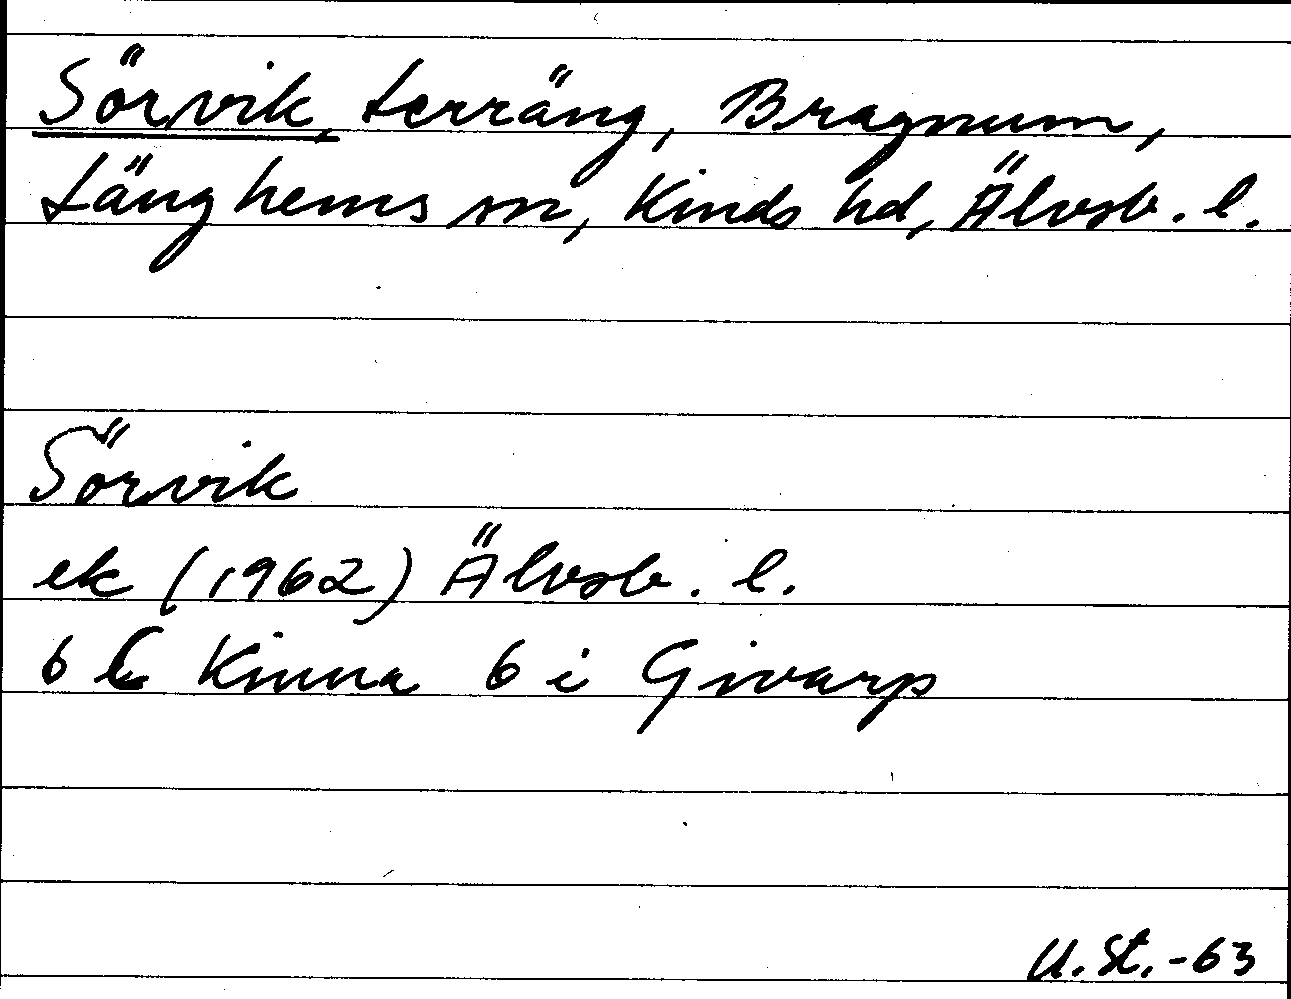 Sörvik, terräng, Bragnum,
Länghems sn, Kinds hd, Älvsb. l.
Sörvik
ek (1962) Älvsb. l.
6 C Kinna 6 i Givarp
U. St. -63